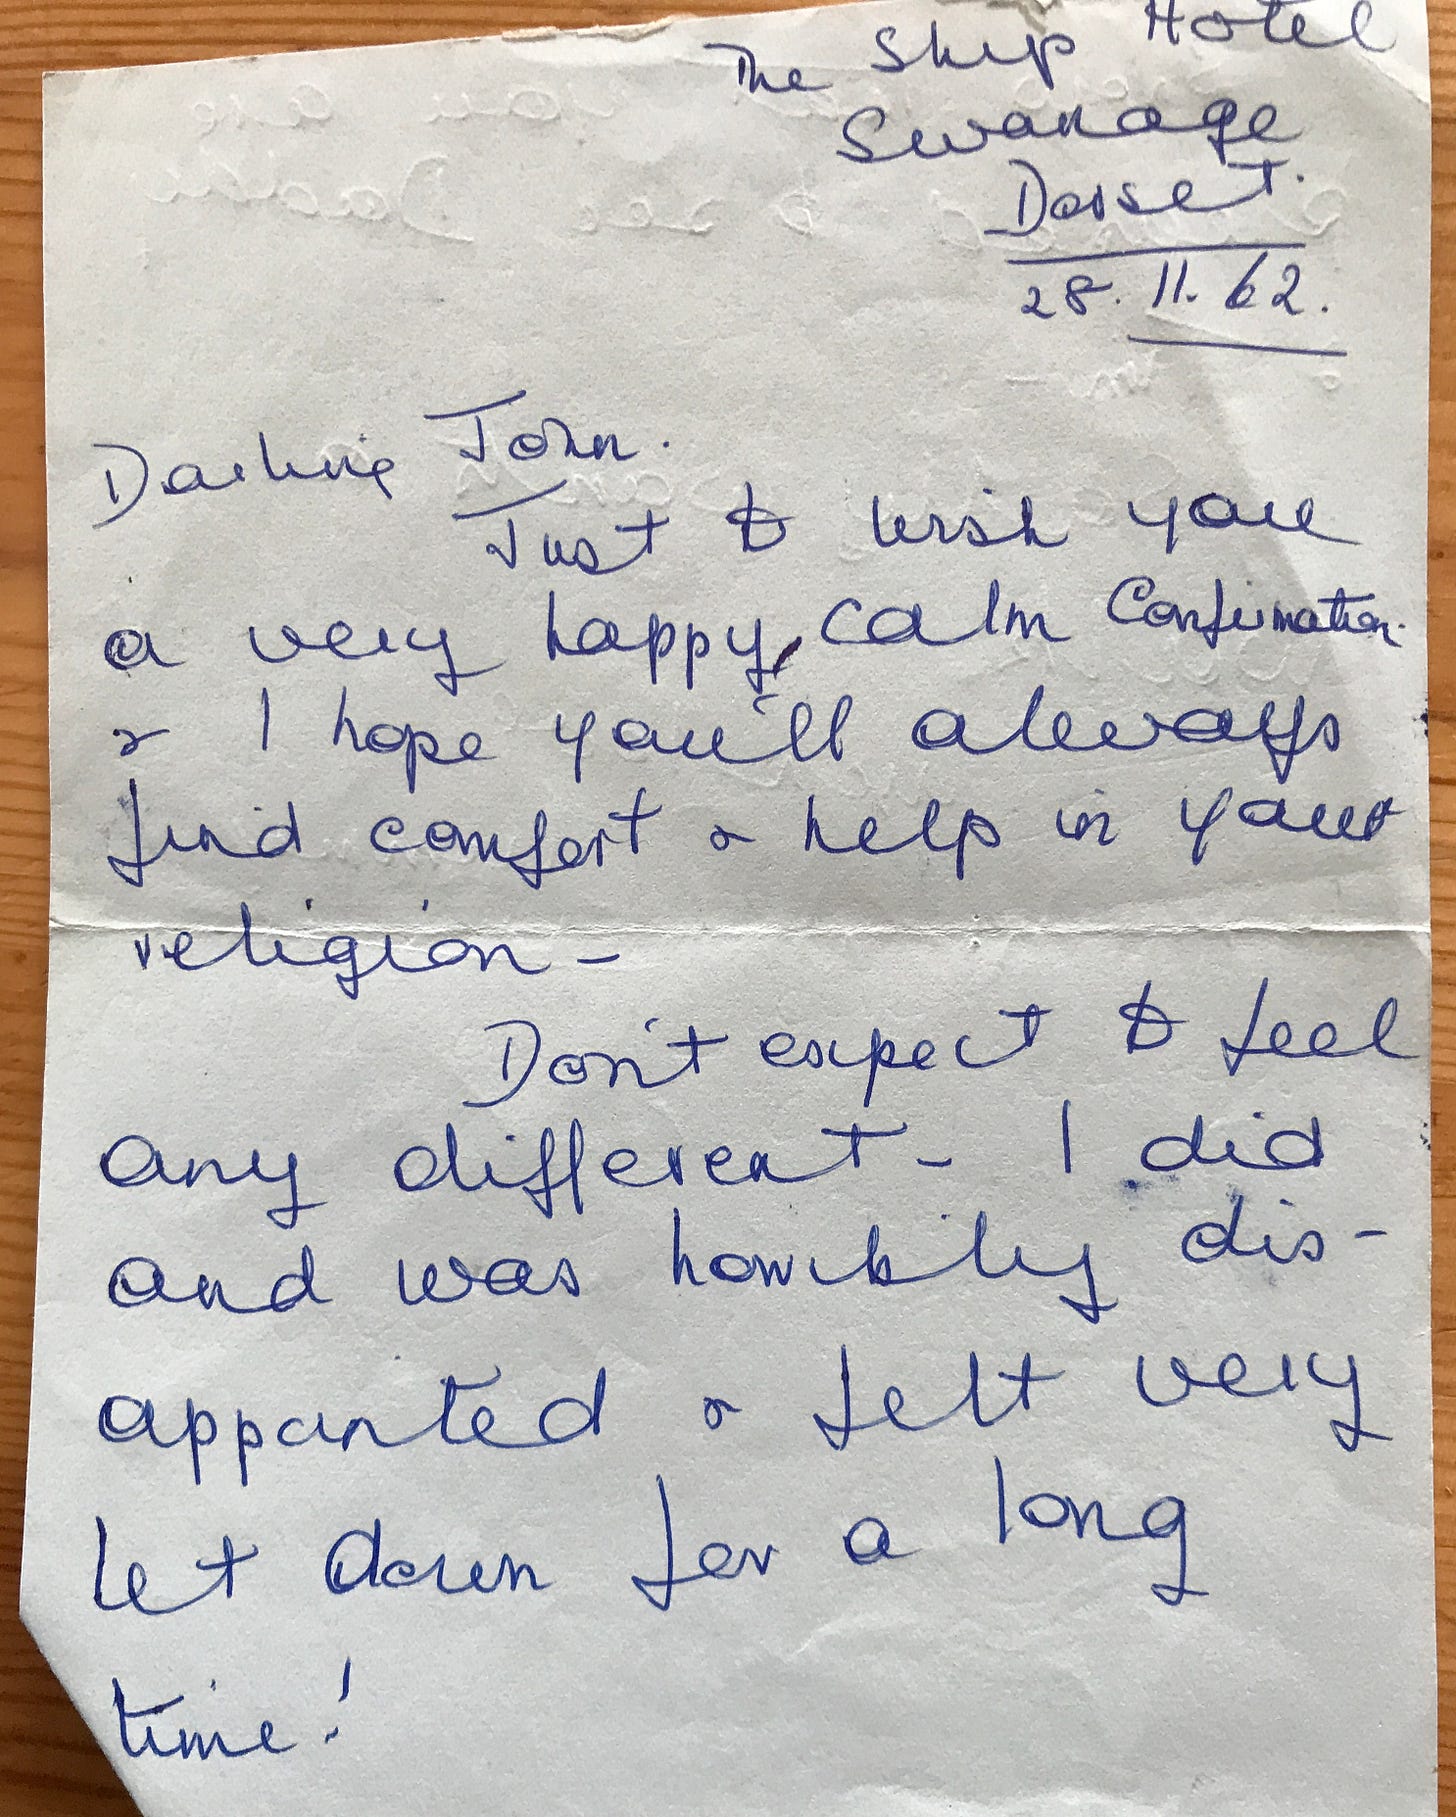 The Ship Hotel
Swanage
Dorset.
28. 11. 62.
Darling John.
Just to wish you
a very happy, calm Confirmation.
& I hope you'll always
find comfort & help in your
religion -
Don't expect to feel
any different - I did
and was horribly dis-
appointed & felt very
let down for a long
time!